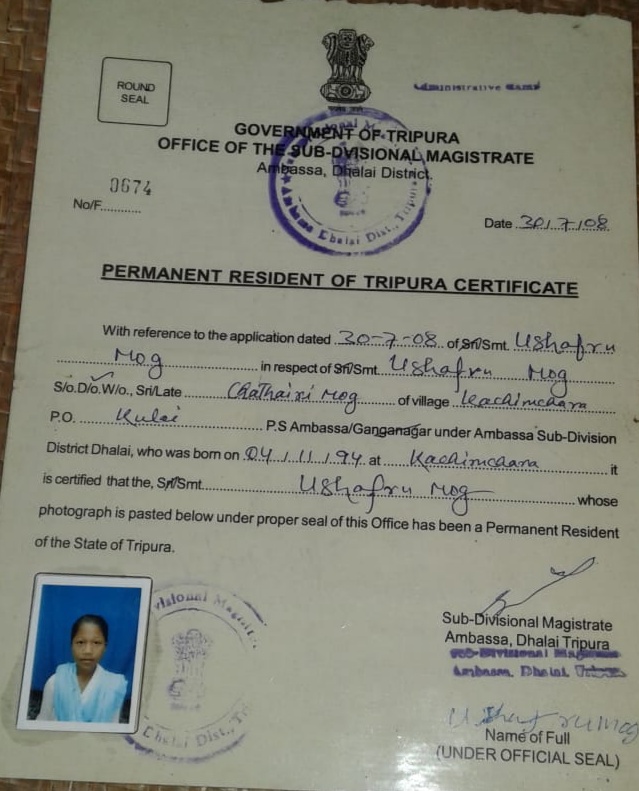 ROUND
SEAL
Administrative Camp
GOVERNMENT OF TRIPURA
OFFICE OF THE SUB-DVISIONAL MAGISTRATE
Ambassa, Dhalai District.
0674
No/F............
Date 30/7/08
PERMANENT RESIDENT OF TRIPURA CERTIFICATE
With reference to the application dated 30-7-08 of Sri/Smt. Ushafru
Mog in respect of Sri/Smt. Ushafru Mog
S/o.D/o.W/o., Sri/Late Chathaixi Mog of village Kachimchara
P.O. Kulai P.S Ambassa/Ganganagar under Ambassa Sub-Division
District Dhalai, who was born on 04/11/94 at Kachimchara it
is certified that the, Sri/Smt. Ushafru Mog whose
photograph is pasted below under proper seal of this Office has been a Permanent Resident
of the State of Tripura.
Sub-Divisional Magistrate
Ambassa, Dhalai Tripura
Sub-Divisional Magistrate
Ambassa, Dhalai, Tripura
Ushafru Mog
Name of Full
(UNDER OFFICIAL SEAL)